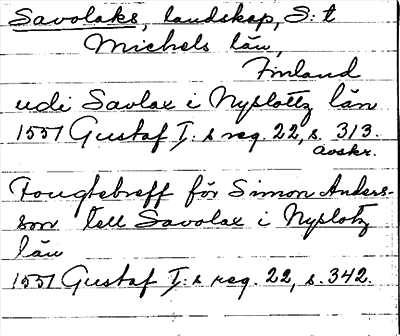 Savolaks, landskap, S:t
Michels län,
Finland
udi Savlax i Nyslottz län
1551 Gustaf I:s reg. 22, s. 313.
avskr.
Fougtebreff för Simon Anders-
son till Savolax i Nyslotz
län
1551 Gustaf I:s reg. 22, s. 342.